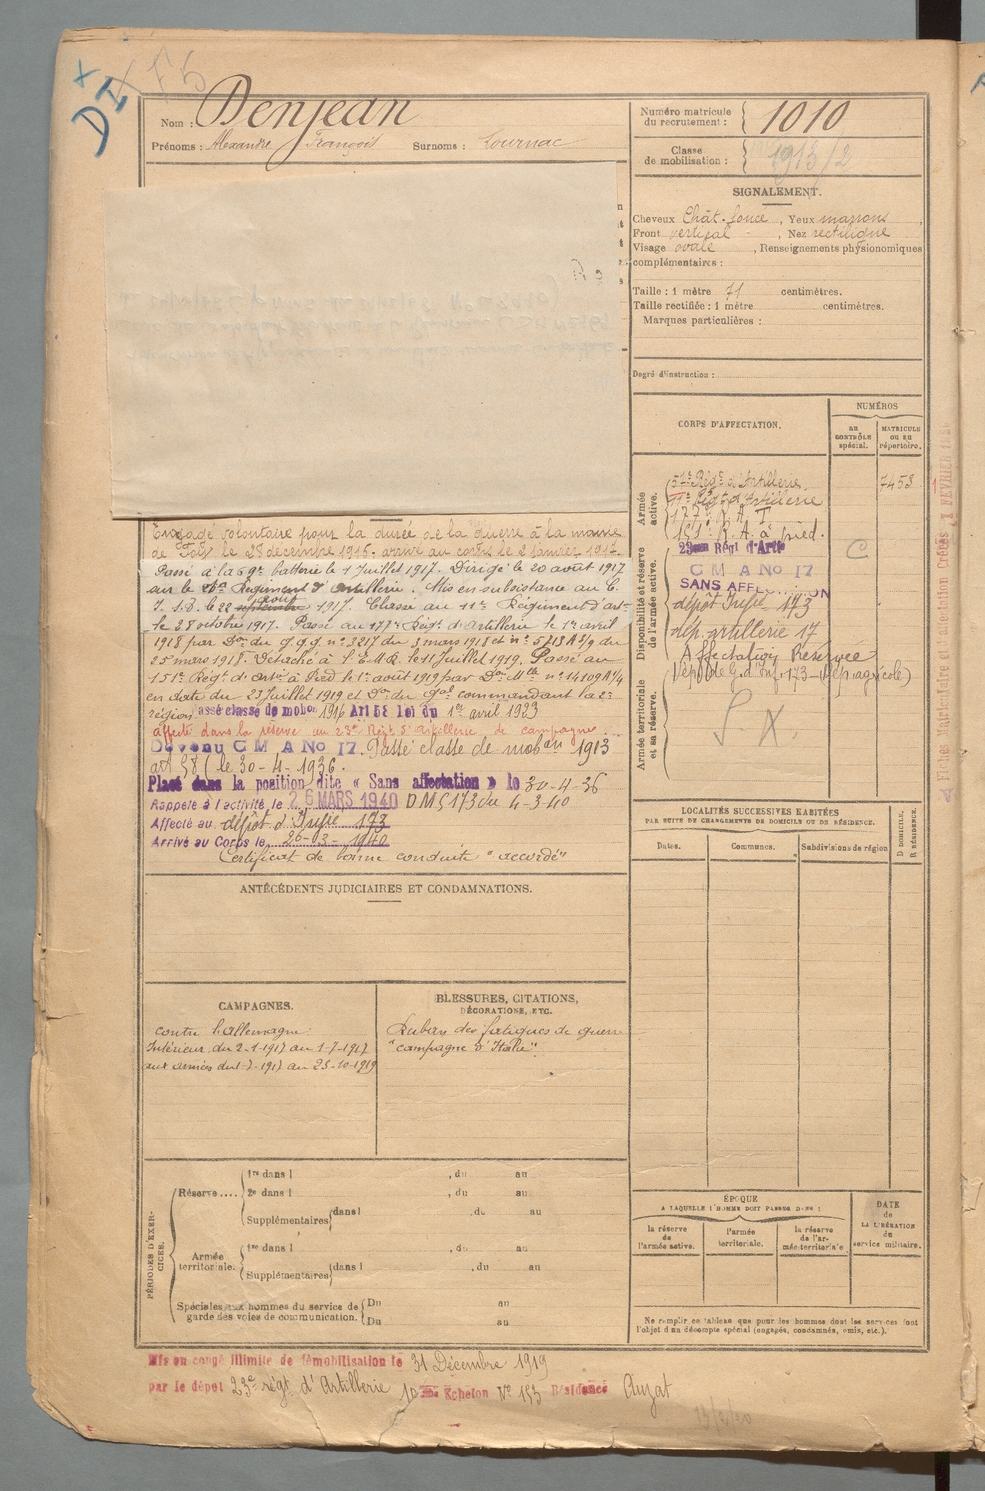 DIX
Nom : Denjean
Prénoms : Alexandre François Surnoms : Tournac
Numéro matricule du recrutement : 1010
Classe de mobilisation : 1913/2
SIGNALEMENT.
Cheveux Chât. foncé, Yeux marrons,
Front vertical, Nez rectiligne
Visage ovale, Renseignements physionomiques
complémentaires :
Taille : 1 mètre 71 centimètres.
Taille rectifiée : 1 mètre centimètres.
Marques particulières :
Degré d'instruction :
CORPS D'AFFECTATION.
NUMÉROS
au CONTRÔLE spécial.
MATRICULE OU AU répertoire.
Armée active.
57e Régt d'Artillerie. 7453
11e Régt d'Artillerie
177e R. A. T.
151e R. A. à pied.
Disponibilité et réserve de l'armée active.
23eme Régt d'Artie
C M A No 17
SANS AFFECTATION
dépôt Infie 173
C
dép. artillerie 17
Affectation Réservée
Armée territoriale et sa réserve.
S. X.
Engagé volontaire pour la durée de la guerre à la mairie
de Foix le 28 décembre 1916. arrivé au corps le 2 janvier 1917.
Passé à la 69e batterie le 1 Juillet 1917. Dirigé le 20 août 1917
sur le Régiment d'Artillerie. Mis en subsistance au C.
I. A. D. le 22 août 1917. Classé au 11e Régiment d'art
le 28 octobre 1917. Passé au 177e Régt d'artillerie le 1er avril
1918 par Don du G.Q.G. n° 3217 du 3 mars 1918 et n° 5713 A 5/9 du
25 mars 1918. Détaché à l'E.M.R. le 11 Juillet 1919. Passé au
151e Régt d'Artie à Pied le 1er août 1919 par Don Mlle n° 14109 A 1/4
en date du 23 Juillet 1919 et Don du Gal commandant la 2e
région Passé classe de mobon 1916 Art 58 loi du 1er avril 1923
affecté dans la réserve au 23e Régt d'artillerie de campagne
Devenu C M A No 17. Passé classe de mobon 1913
art 58 (le 30-4-1936.
Placé dans la position dite « Sans affectation » le 30-4-36
Rappelé à l'activité le 26 MARS 1940 DM 5173 du 4-3-40
Affecté au dépôt d'Infie 173
Arrivé au Corps le 26-03-1940
Certificat de bonne conduite "accordé"
ANTÉCÉDENTS JUDICIAIRES ET CONDAMNATIONS.
CAMPAGNES.
contre l'allemagne :
Intérieur du 2-1-1917 au 1-7-1917
aux armées du 1-7-1917 au 23-10-1919
BLESSURES, CITATIONS,
DÉCORATIONS, ETC.
Ruban des fatigues de guerre
"campagne d'Italie"
LOCALITÉS SUCCESSIVES HABITÉES
PAR SUITE DE CHANGEMENTS DE DOMICILE OU DE RÉSIDENCE.
Dates. Communes. Subdivisions de région
D DOMICILE, R RÉSIDENCE.
PÉRIODES D'EXERCICES.
Réserve....
1re dans l , du au
2e dans l , du au
Supplémentaires dans l , du au
Armée territoriale.
1re dans l , du au
Supplémentaires dans l , du au
Spéciales aux hommes du service de garde des voies de communication.
Du au
Du au
ÉPOQUE
A LAQUELLE L'HOMME DOIT PASSER DANS :
la réserve de l'armée active.
l'armée territoriale.
la réserve de l'armée territoriale
DATE de LA LIBÉRATION du service militaire.
Ne remplir ce tableau que pour les hommes dont les services font
l'objet d'un décompte spécial (engagés, condamnés, omis, etc.).
Mis en congé illimité de démobilisation le 31 Décembre 1919
par le dépôt 23e régt d'Artillerie 10eme Echelon N° 153 Résidence Auzat